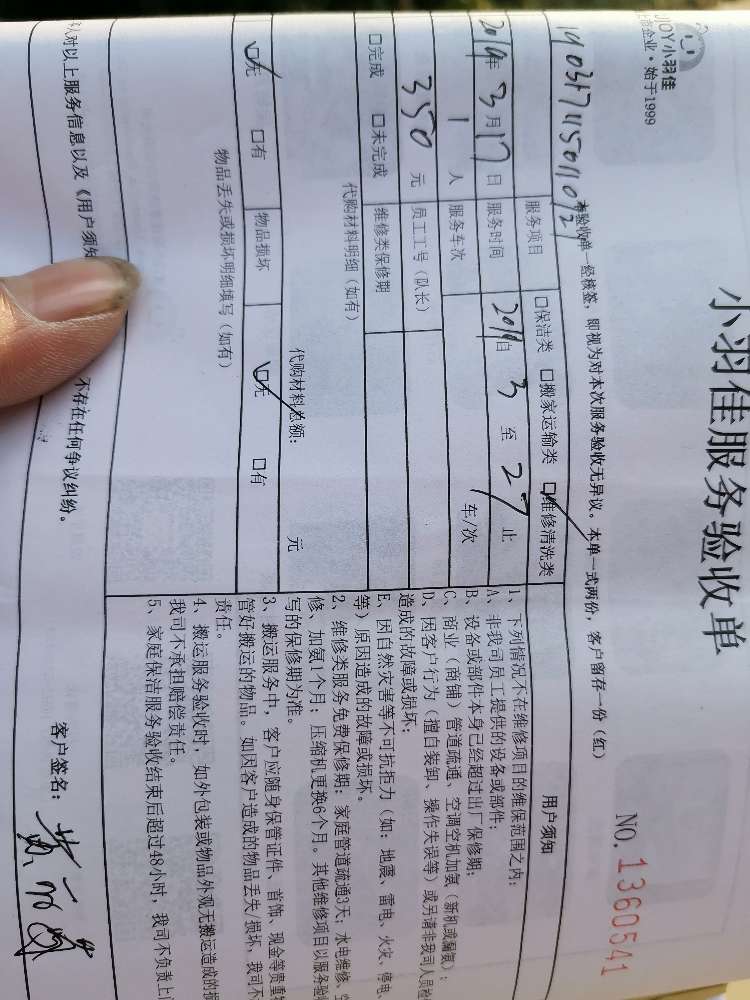 小羽佳服务验收单
UJOY小羽佳
上市企业·始于1999
NO. 1360541
本验收单一经核签，即视为对本次服务验收无异议。本单一式两份，客户留存一份（红）
服务项目 □保洁类 □搬家运输类 □维修清洗类
2019年3月17日 服务时间 2019自 3 至 27 止
1人 服务车次 车/次
350元 员工工号（队长）
□完成 □未完成 维修类保修期
代购材料明细（如有）
代购材料总额： 元
□无 □有 物品损坏 □无 □有
物品丢失或损坏明细填写（如有）
用户须知
1、下列情况不在维修项目的维保范围之内：
A、非我司员工提供的设备或部件；
B、设备或部件本身已经超过出厂保修期；
C、商业（商铺）管道疏通、空调空机加氨（新机或漏氨）；
D、因客户行为（擅自装卸、操作失误等）或另请非我司人员检
造成的故障或损坏；
E、因自然灾害等不可抗拒力（如：地震、雷电、火灾、停电、
等）原因造成的故障或损坏。
2、维修类服务免费保修期：家庭管道疏通3天；水电维修、空
修、加氨1个月；压缩机更换6个月。其他维修项目以服务验收
写的保修期为准。
3、搬运服务中，客户应随身保管证件、首饰、现金等贵重物
管好搬运的物品。如因客户造成的物品丢失/损坏，我司不
责任。
4、搬运服务验收时，如外包装或物品外观无搬运造成的损
我司不承担赔偿责任。
5、家庭保洁服务验收结束后超过48小时，我司不负责上
人对以上服务信息以及《用户须知 不存在任何争议纠纷。
客户签名：